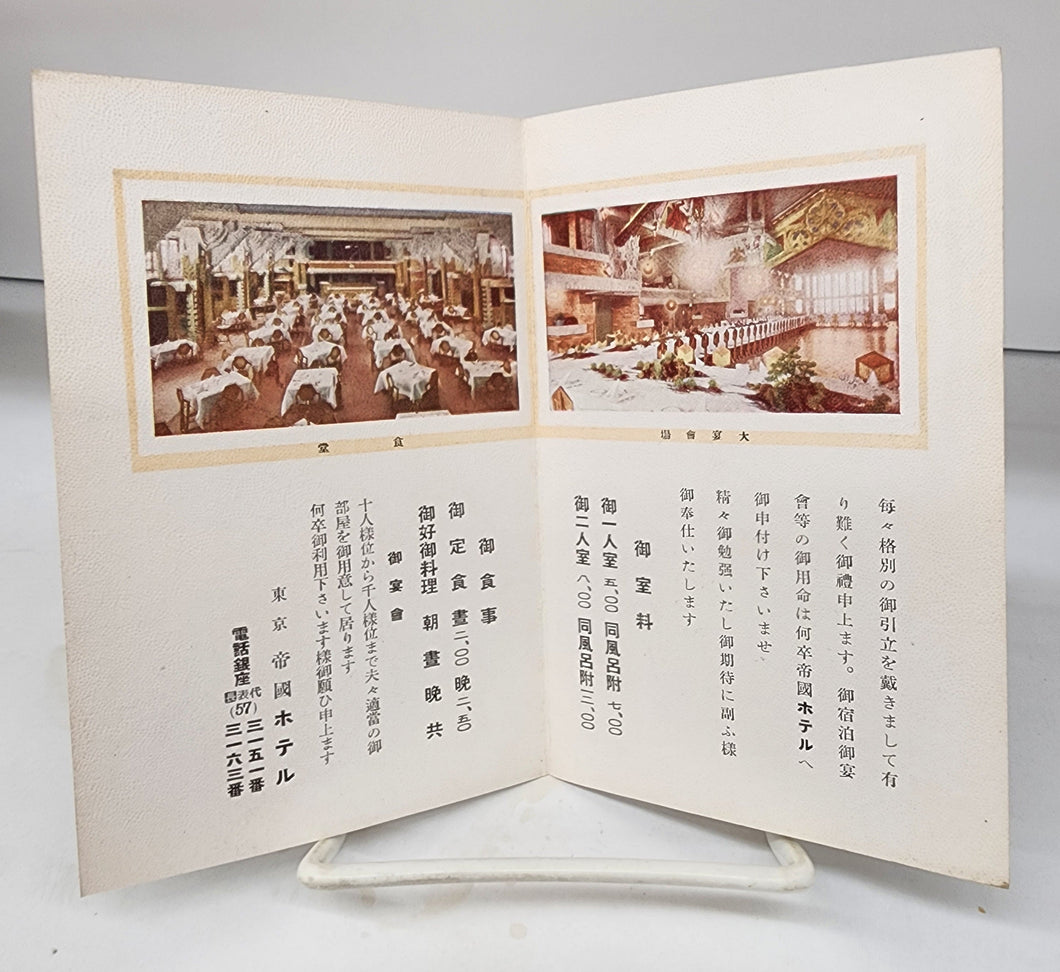 大宴會場
毎々格別の御引立を戴きまして有
り難く御禮申上ます。御宿泊御宴
會等の御用命は何卒帝國ホテルへ
御申付け下さいませ、
精々御勉强いたし御期待に副ふ樣
御奉仕いたします
御室料
御一人室 五、〇〇 同風呂附 七、〇〇
御二人室 八、〇〇 同風呂附 一二、〇〇
食堂
御食事
御定食 晝二、〇〇 晩二、五〇
御好御料理 朝晝晩共
御宴會
十人樣位から千人樣位まで夫々適當の御
部屋を御用意して居ります
何卒御利用下さいます樣御願ひ申上ます
東京 帝國ホテル
電話銀座 長代表 (57) 三一五一番
三一六三番